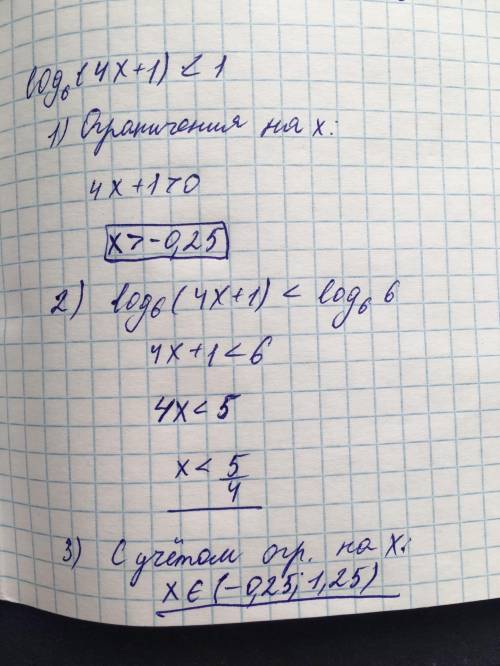 log₆(4x+1) < 1
1) Ограничения на x:
4x+1>0
x>-0,25
2) log₆(4x+1) < log₆6
4x+1<6
4x<5
x < 5/4
3) С учётом огр. на x:
x∈(-0,25; 1,25)